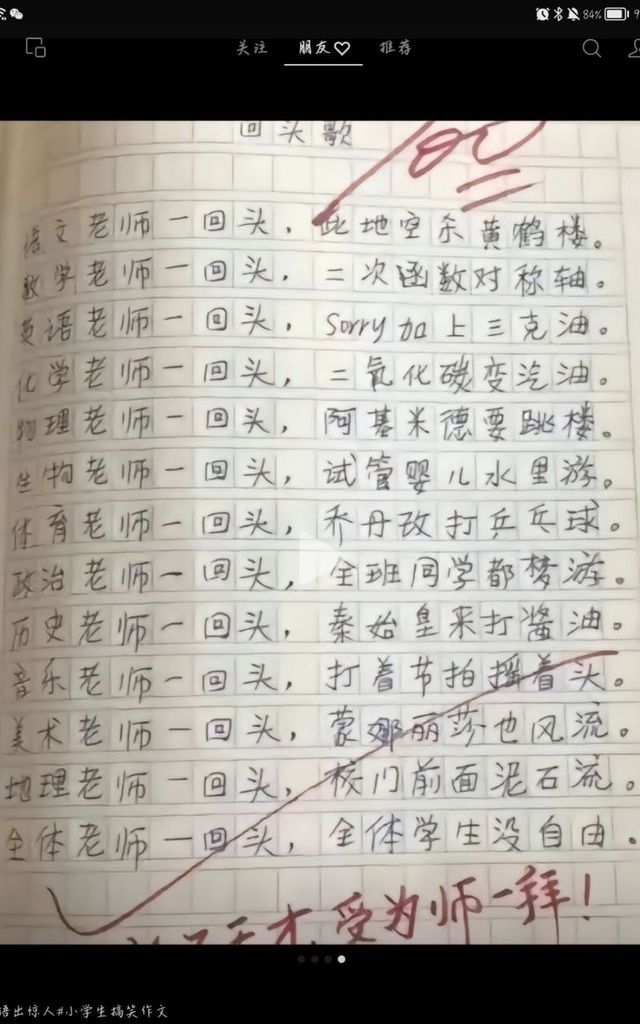 84%
关注 朋友♡ 推荐
回头歌
100
语文老师一回头，此地空余黄鹤楼。
数学老师一回头，二次函数对称轴。
英语老师一回头，Sorry加上三克油。
化学老师一回头，二氧化碳变汽油。
物理老师一回头，阿基米德要跳楼。
生物老师一回头，试管婴儿水里游。
体育老师一回头，乔丹改打乒乓球。
政治老师一回头，全班同学都梦游。
历史老师一回头，秦始皇来打酱油。
音乐老师一回头，打着节拍摇着头。
美术老师一回头，蒙娜丽莎也风流。
地理老师一回头，校门前面泥石流。
全体老师一回头，全体学生没自由.
天才，受为师一拜！
语出惊人#小学生搞笑作文